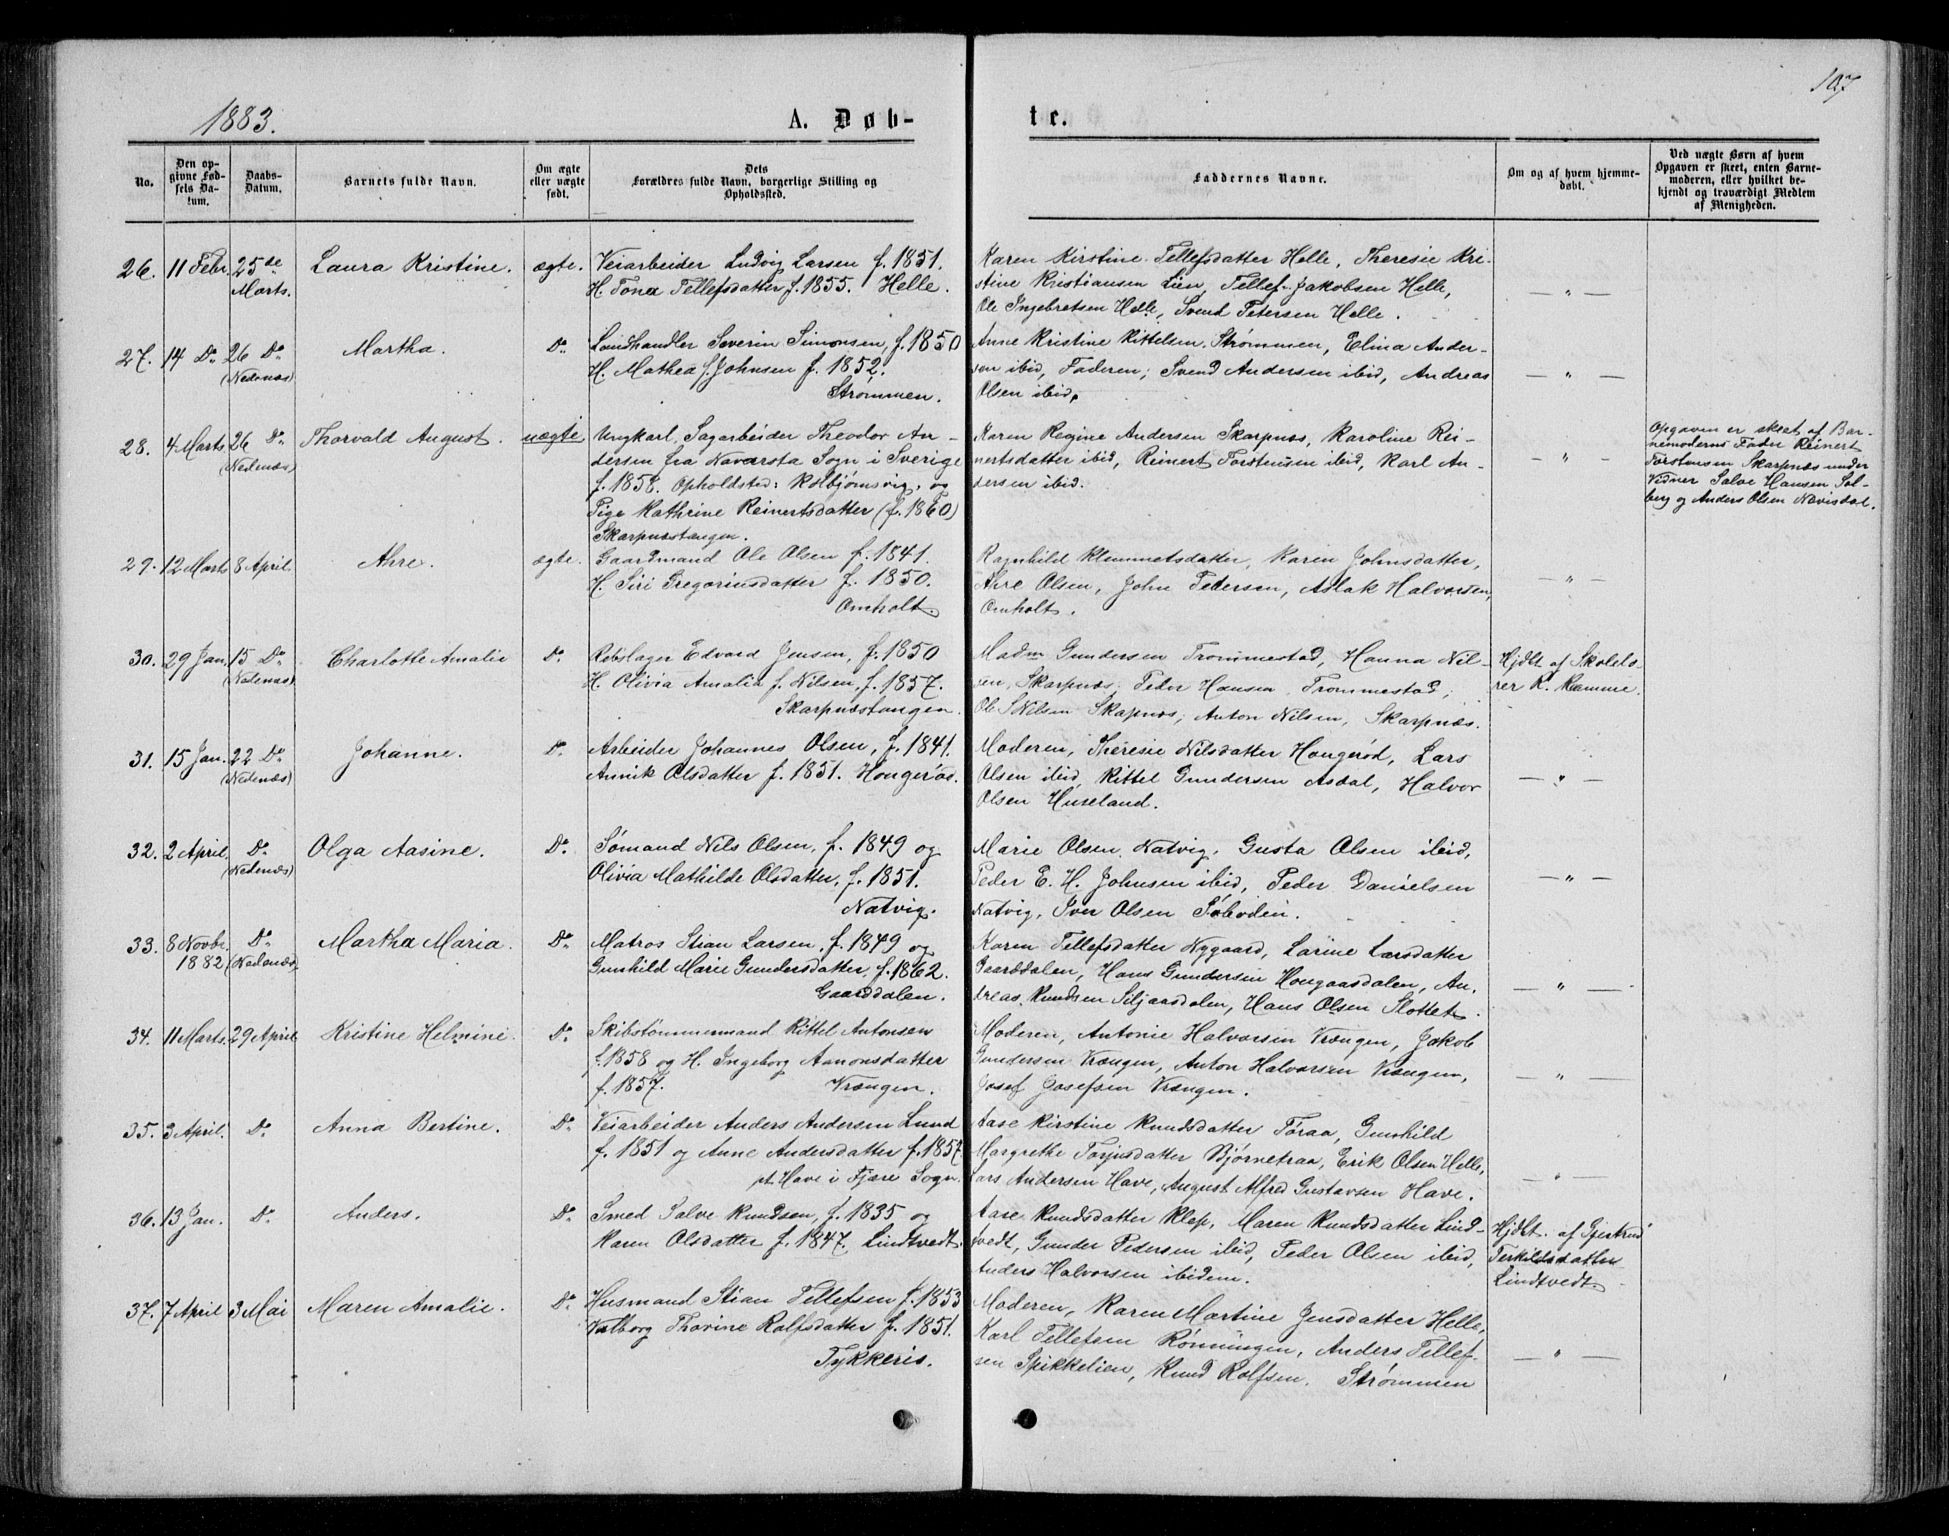 1883.
A. Døb-
te.
107
No.
Den op-
givne Fød-
sels Da-
tum.
Daabs-
Datum.
Barnets fulde Navn.
Om ægte
eller uægte
født.
Dets
Forældres fulde Navn, borgerlige Stilling og
Opholdssted.
Faddernes Navne.
Om og af hvem hjemme-
døbt.
Ved uægte Børn af hvem
Opgaven er skeet, enten Barne-
moderen, eller hvilket be-
kjendt og troværdigt Medlem
af Menigheden.
26. 11 Febr. 25de Marts. Laura Kristine. ægte.
Veiarbeider Ludvig Larsen f. 1851.
H. Tona Tellefsdatter f. 1855. Helle.
Karen Kirstine Tellefsdatter Helle, Theresie Kri-
stine Kristiansen Lien, Tellef Jakobsen Helle,
Ole Ingebretsen Helle, Svend Petersen Helle.
— " —
27. 14 Do 26 Do (Nedenæs) Martha. Do
Landhandler Severin Simonsen, f. 1850
H. Mathea f. Johnsen f. 1852.
Strømmen.
Anne Kristine Kittelsen Strømmen, Elina Ander-
sen ibid, Faderen; Svend Andersen ibid, Andreas
Olsen ibid.
— " —
28. 4 Marts 26 Do (Nedenæs) Thorvald August. uægte
Ungkarl, Sagarbeider Theodor An-
dersen fra Naversta Sogn i Sverige
f. 1858. Opholdsted: Kolbjørnsvig, og
Pige Kathrine Reinertsdatter (f. 1860)
Skarpnæstangen.
Karen Regine Andersen Skarpnæs, Karoline Rei-
nertsdatter ibid, Reinert Torstensen ibid, Karl An-
dersen ibid.
— " —
Opgaven er skeet af Bar-
nemoderns Fader Reinert
Torstensen Skarpnæs under
Vidner Salve Hansen Sol-
berg og Anders Olsen Nævisdal.
29. 12 Marts 8 April Ahre. ægte.
Gaardmand Ole Olsen f. 1841.
H. Siri Gregoriusdatter f. 1850.
Omholt.
Ragnhild Klemmetsdatter, Karen Johnsdatter,
Ahre Olsen, John Pedersen, Aslak Halvorsen,
Omholt.
— " —
30. 29 Jan. 15 Do (Nedenæs) Charlotte Amalie Do
Rebslager Edvard Jensen, f. 1850
H. Olivia Amalia f. Nilsen, f. 1857.
Skarpnæstangen.
Madm Gundersen Trommestad, Hanna Nil-
sen, Skarpnæs, Peder Hansen, Trommestad;
Ole S Nilsen Skapnæs; Anton Nilsen, Skarpnæs.
Hjdbt af Skolelæ-
rer K. Ramme.
31. 15 Jan. 22 Do (Nedenæs) Johanne. Do
Arbeider Johannes Olsen, f. 1841.
Annik Olsdatter f. 1851. Hougerød.
Moderen, Theresie Nilsdatter Hougerød, Lars
Olsen ibid, Kittel Gundersen Asdal, Halvor
Olsen Huseland.
— " —
32. 2 April. Do (Nedenæs) Olga Aasine. Do
Sømand Nils Olsen, f. 1849 og
Olivia Mathilde Olsdatter, f. 1851.
Natvig.
Marie Olsen Natvig, Gusta Olsen ibid,
Peder E. H. Johnsen ibid, Peder Danielsen
Natvig, Iver Olsen Søboden.
— " —
33. 8 Novbr. 1882 Do (Nedenæs) Martha Maria. Do
Matros Stian Larsen, f. 1849 og
Gunhild Marie Gundersdatter, f. 1862.
Gaarddalen.
Karen Tellefsdatter Nygaard, Larine Larsdatter
Gaarddalen, Hans Gundersen Hougaasdalen, An-
dreas Knudsen Siljaasdalen, Hans Olsen Slottet.
— " —
34. 11 Marts. 29 April Kristine Helmine. Do
Skibstømmermand Kittel Antonsen
f. 1858 og H. Ingeborg Aanonsdatter
f. 1857. Vrængen.
Moderen, Antonie Halvorsen Vrængen, Jakob
Gundersen Vrængen, Anton Halvorsen Vrængen,
Josef Josefsen Vrængen.
— " —
35. 3 April. Do Anna Bertine. Do
Veiarbeider Anders Andersen Lund
f. 1851 og Anne Andersdatter f. 1857
pt Have i Fjære Sogn.
Aase Kirstine Knudsdatter Toraa, Gunhild
Margrethe Torjusdatter Bjørnetraa, Erik Olsen Helle,
Lars Andersen Have, August Alfred Gustavsen Have.
— " —
36. 13 Jan. Do Anders. Do
Smed Salve Knudsen, f. 1835 og
Karen Olsdatter f. 1847. Lindtvedt.
Aase Knudsdatter Klep, Maren Knudsdatter Lind-
tvedt, Gunder Pedersen ibid, Peder Olsen ibid,
Anders Halvorsen ibidem.
Hjdbt. af Gjertrud
Terkildsdatter
Lindtvedt.
37. 7 April 3 Mai Maren Amalie. Do
Husmand Stian Tellefsen f. 1853
Valborg Thorine Rolfsdatter f. 1851.
Tykkeris.
Moderen, Karen Martine Jensdatter Helle,
Karl Tellefsen Rønningen, Anders Tellef-
sen Spikkelien, Knud Rolfsen, Strømmen
— " —